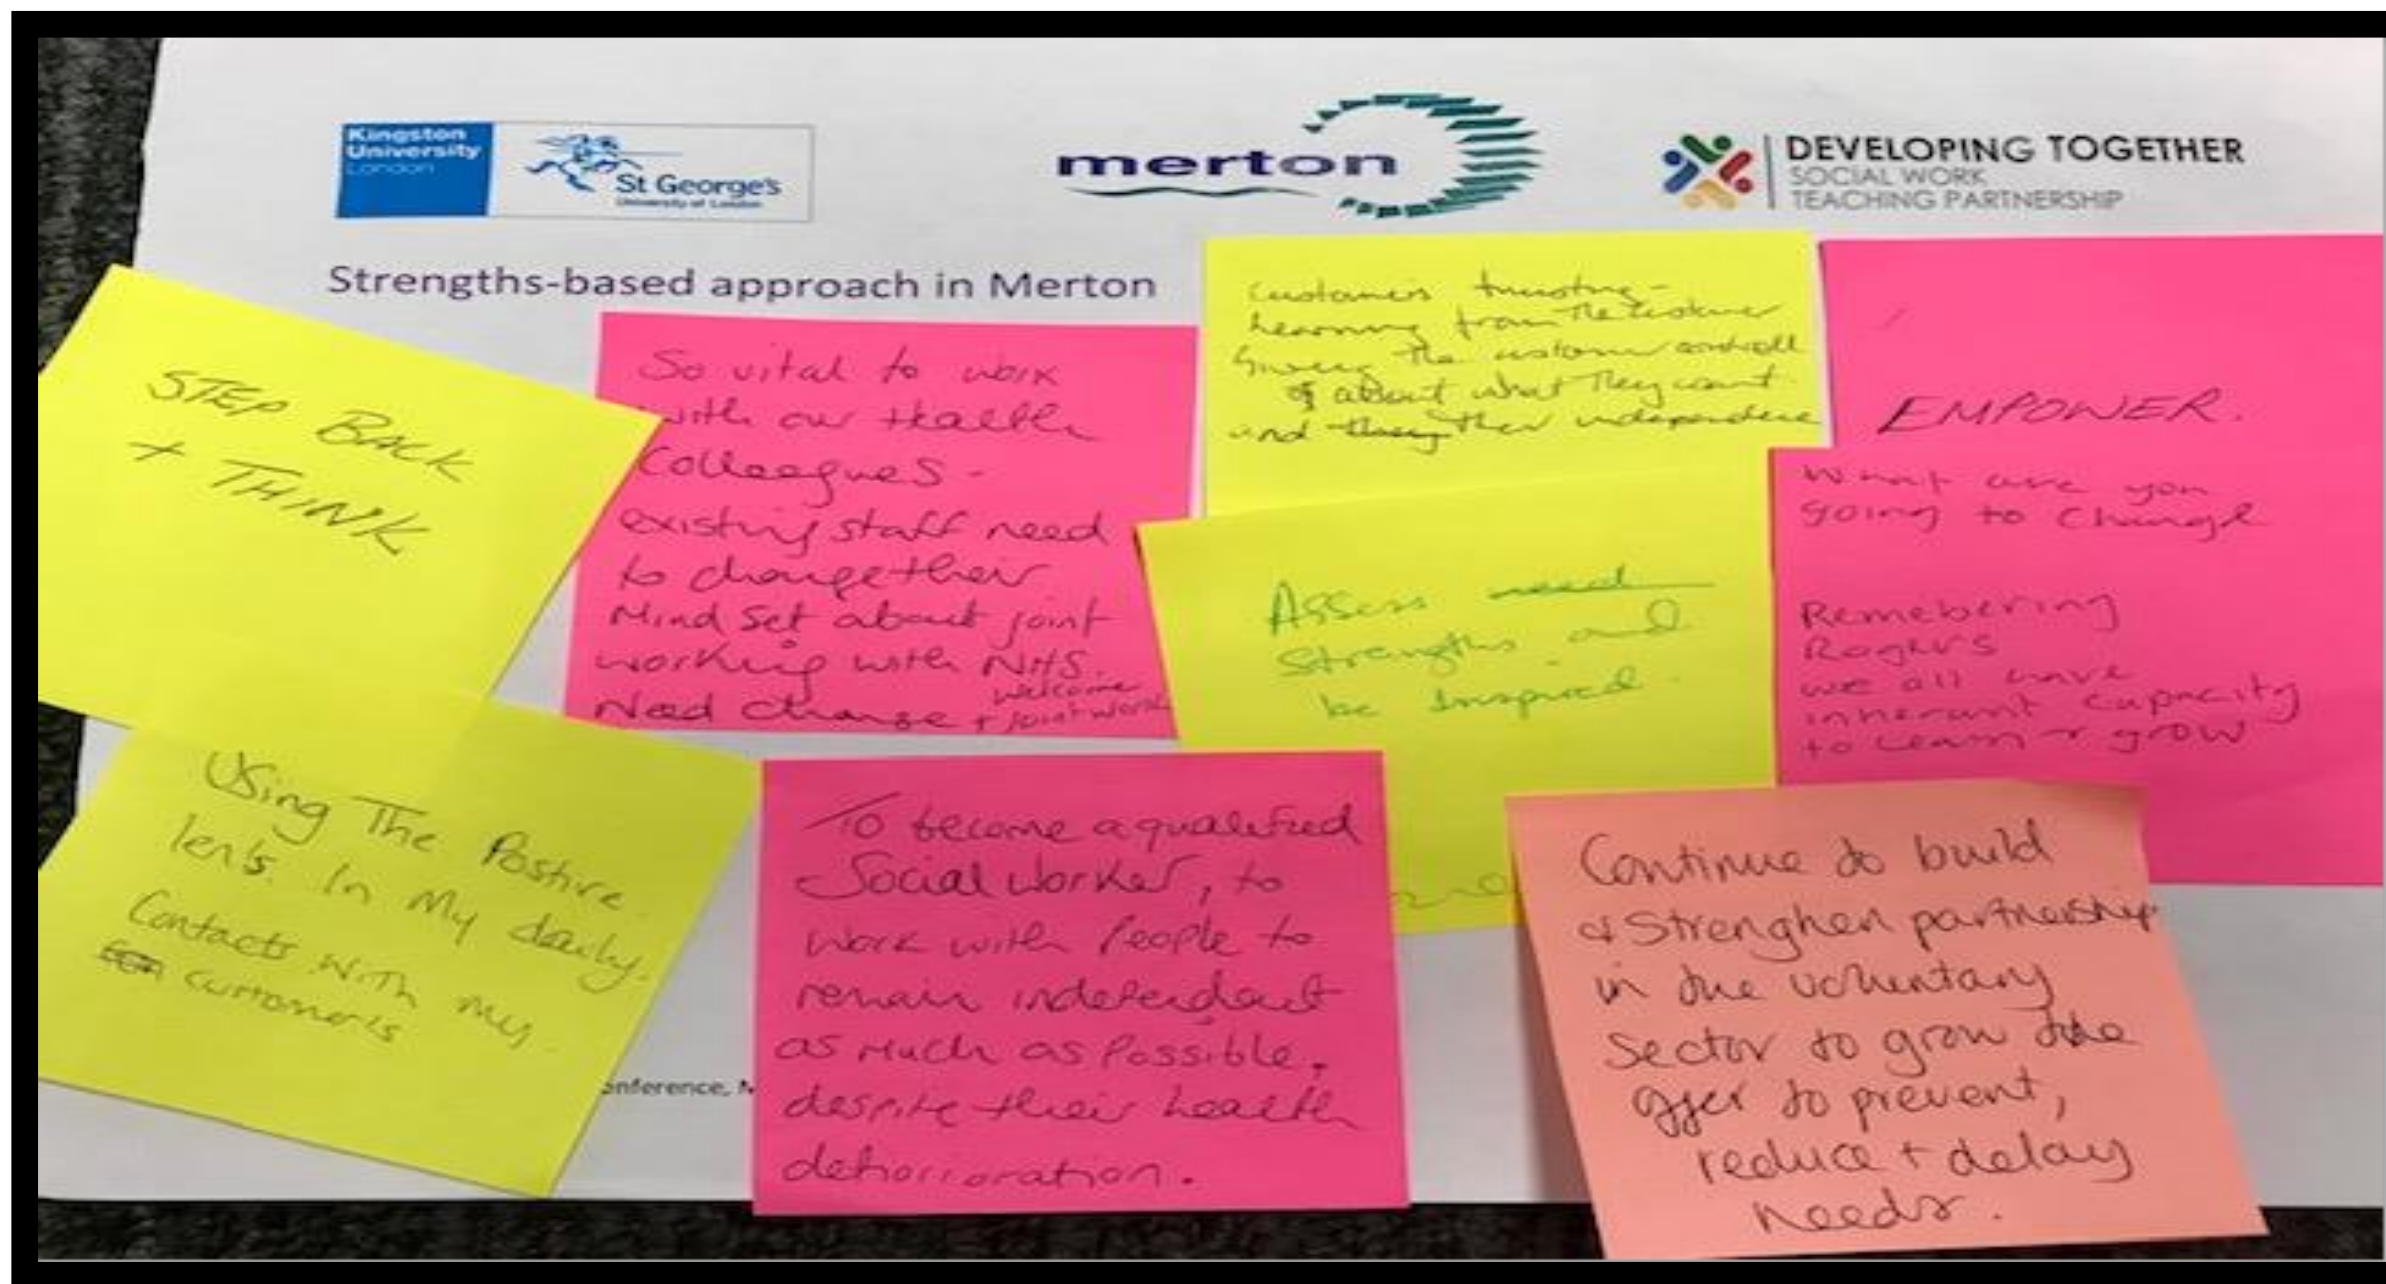 Kingston
University
London
St George's
University of London
merton
DEVELOPING TOGETHER
SOCIAL WORK
TEACHING PARTNERSHIP
Strengths-based approach in Merton
STEP BACK
+ THINK
So vital to work
with our Health
Colleagues -
existing staff need
to change their
Mind Set about joint
working with NHS.
Need change + welcome
joint work
Customers trusting -
learning from The customer
Giving The customer control
about what They want
and their independence
EMPOWER.
Assess need
Strengths and
be Inspired.
What are you
going to change
Remebering
Rogers
we all have
inherant capacity
to learn + grow
Using The Postive
lens. In My daily.
Contacts with my
customers
To become a qualified
Social Worker, to
work with People to
remain independant
as much as Possible,
despite their health
dehorioration.
Continue to build
& Strenghen partnership
in the voluntary
sector to grow the
offer to prevent,
reduce + delay
needs.
onference,